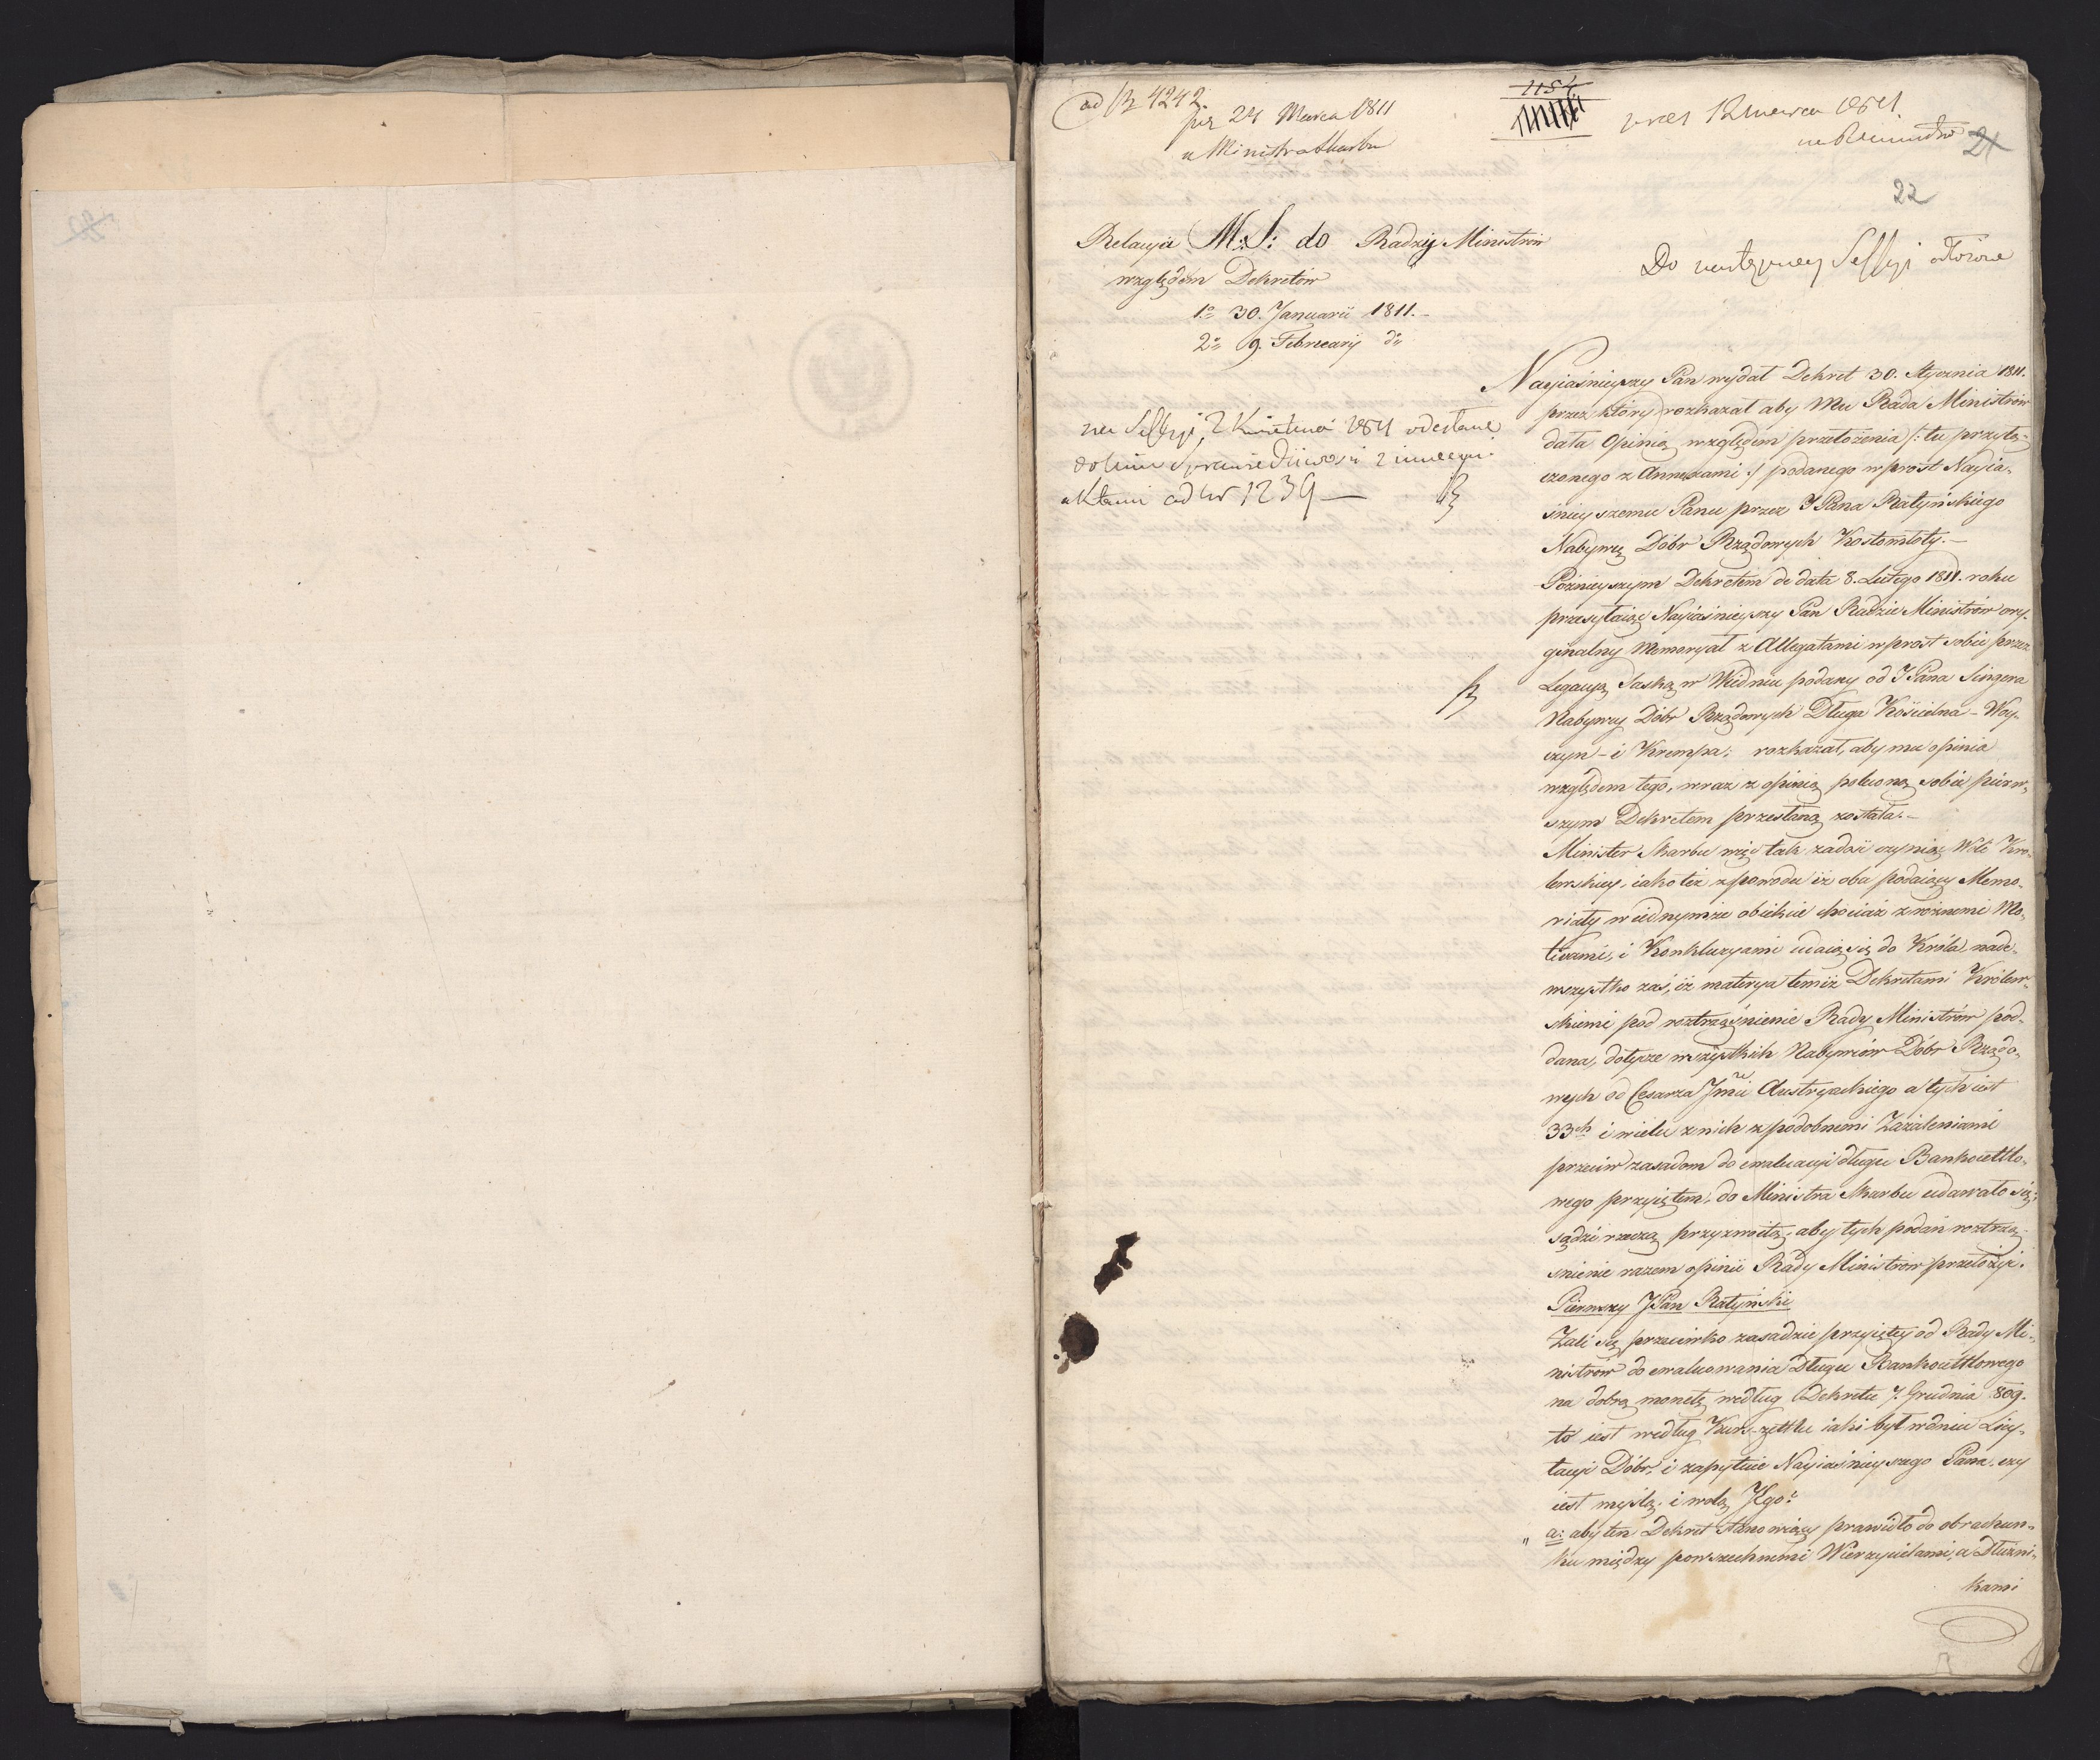 ad 4242.
prz 24 Marca 1811
u Ministra Skarbu
1154
21
22
Relacyia M: S: do Radzij Ministrów
względem Dekretów
1o 30. Januarii 1811.-
2o 9. Februarij do
Do następney Sessyi odłożone
na Sessyi 2 Kwietnia 1811 odesłane
do Min Sprawiedliwosci z innemi
aktami ad Nr 1239 —
Nayiaśnieyszy Pan wydał Dekret 30. Stycznia 1811.
przez który rozkazał aby Mu Rada Ministrów
dała Opinią względem przełożenia /: tu przyłą-
czonego z Annexami :/ podanego wprost Nayia-
śnieyszemu Panu przez JPana Ratyńskiego
Nabywcę Dóbr Rządowych Kostomłoty.-
Poźnieyszym Dekretem de dato 8. Lutego 1811. roku
przesyłaiąc Nayiaśnieyszy Pan Radzie Ministrów ory-
ginalny Memoryał z Allegatami wprost sobie przez
Legacyą Saską w Wiedniu podany od JPana Singera
Nabywcy Dóbr Rządowych Długa Kościelna - Woy-
czyn - i Krempa; rozkazał, aby mu opinia
względem tego, wraz z opinią poleconą sobie pierw-
szym Dekretem przesłaną została.-
Minister Skarbu więc tak zadość czyniąc Woli Kró-
lewskiey, iako też z powodu iż oba podaiący Memo-
riały w iednymże obiekcie chociaż z rożnemi Mo-
tivami, i Konkluzyami udaią się do Króla, nade-
wszystko zaś, iż materya temiż Dekretami Królew-
skiemi pod roztrząśnienie Rady Ministrów pod-
dana, dotycze wszystkich Nabywców Dóbr Rządo-
wych od Cesarza Jmci Austryackiego a tych iest
33ch i wielu z nich z podobnemi Zażaleniami
przeciw zasadom do ewaluacyi długu Bankocetlo-
wego przyiętem, do Ministra Skarbu udawało się;
sądzi rzeczą przyzwoitą, aby tych podań roztrzą-
snienie razem opinii Rady Ministrów przełożyć.
Pierwszy JPan Ratyński
Żali się przeciwko zasadzie przyiętey od Rady Mi-
nistrów do ewaluowania Długu Bankocetlowego
na dobrą monetę według Dekretu 7. Grudnia 809.
to iest według Kurs-zettlu iaki był w dniu Licy-
tacyi Dóbr, i zapytuie Nayiaśnieyszego Pana, czy
iest myślą, i wolą Jego:
„ a: aby ten Dekret stanowiący prawidło do obrachun-
ku między powszechnemi Wierzycielami, a Dłużni-
kami